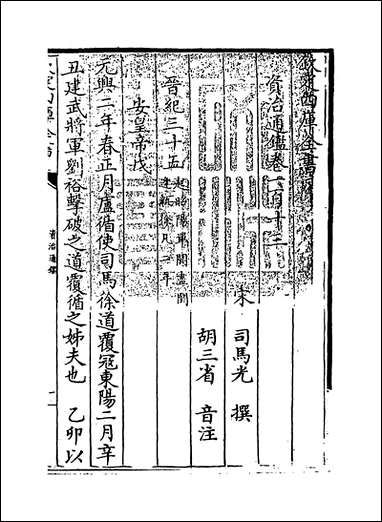 欽定四庫全書
資治通鑑卷一百十三
宋 司馬光 撰
胡三省 音注
晉紀三十五 起昭陽單閼盡閼
逢執徐凡二年
安皇帝戊
元興二年春正月盧循使司馬徐道覆冦東陽二月辛
丑建武將軍劉裕擊破之道覆循之姊夫也 乙卯以
資治通鑑